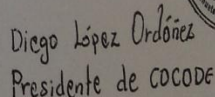 Diego López Ordóñez
Presidente de COCODE